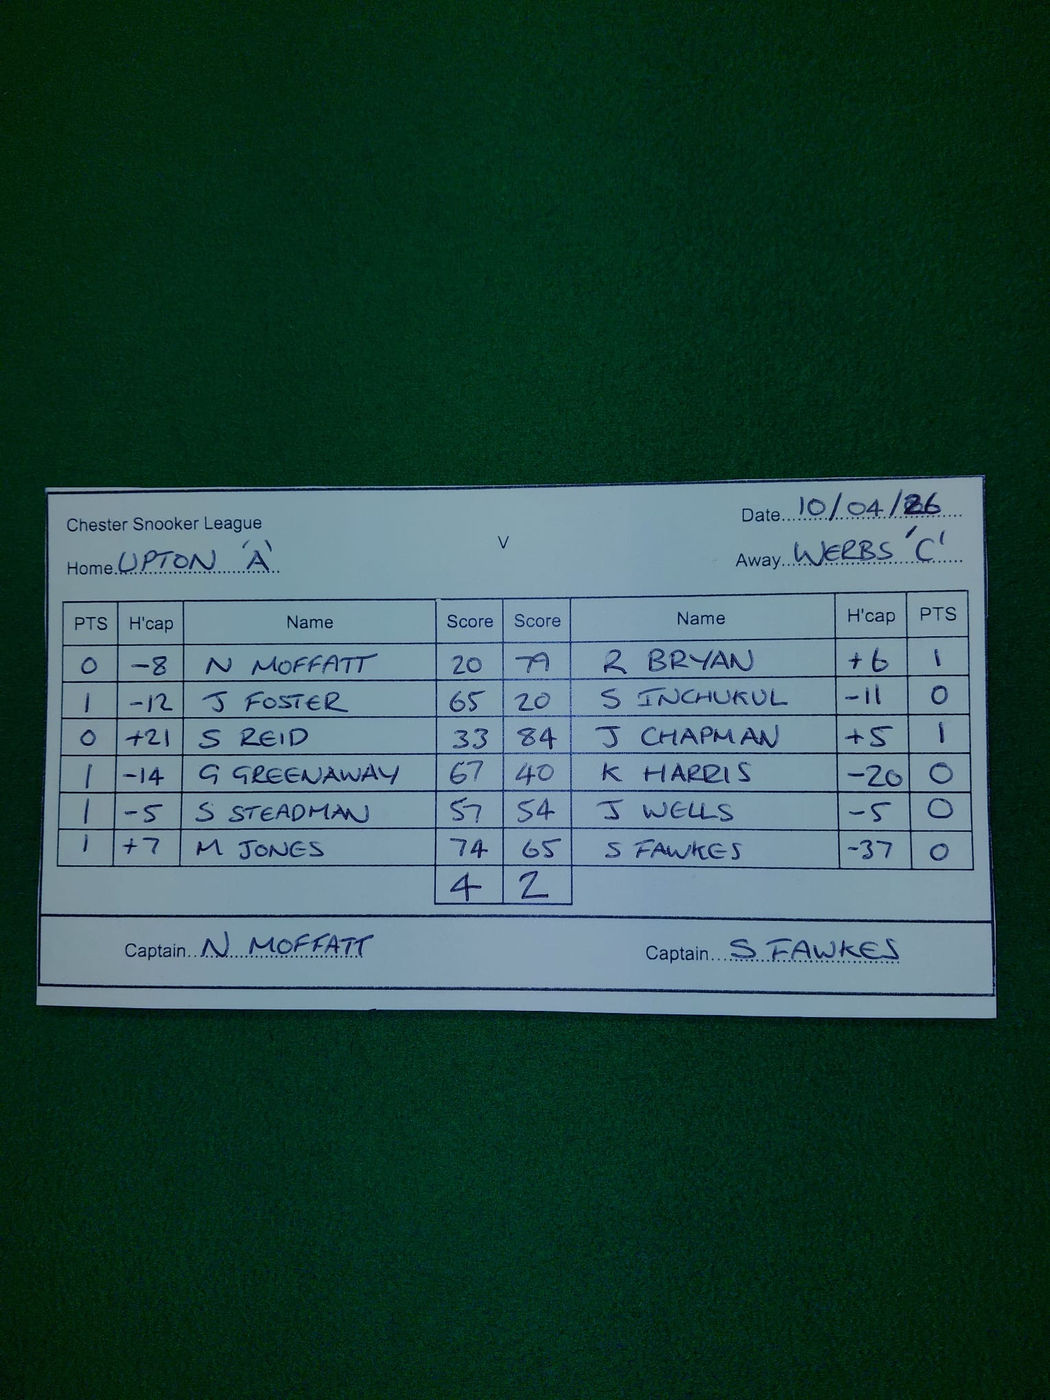 Chester Snooker League
V
Date 10/04/26
Home UPTON 'A'
Away WERBS 'C'
PTS H'cap Name Score Score Name H'cap PTS
0 -8 N MOFFATT 20 79 R BRYAN +6 1
1 -12 J FOSTER 65 20 S INCHUKUL -11 0
0 +21 S REID 33 84 J CHAPMAN +5 1
1 -14 G GREENAWAY 67 40 K HARRIS -20 0
1 -5 S STEADMAN 57 54 J WELLS -5 0
1 +7 M JONES 74 65 S FAWKES -37 0
4 2
Captain N MOFFATT Captain S FAWKES